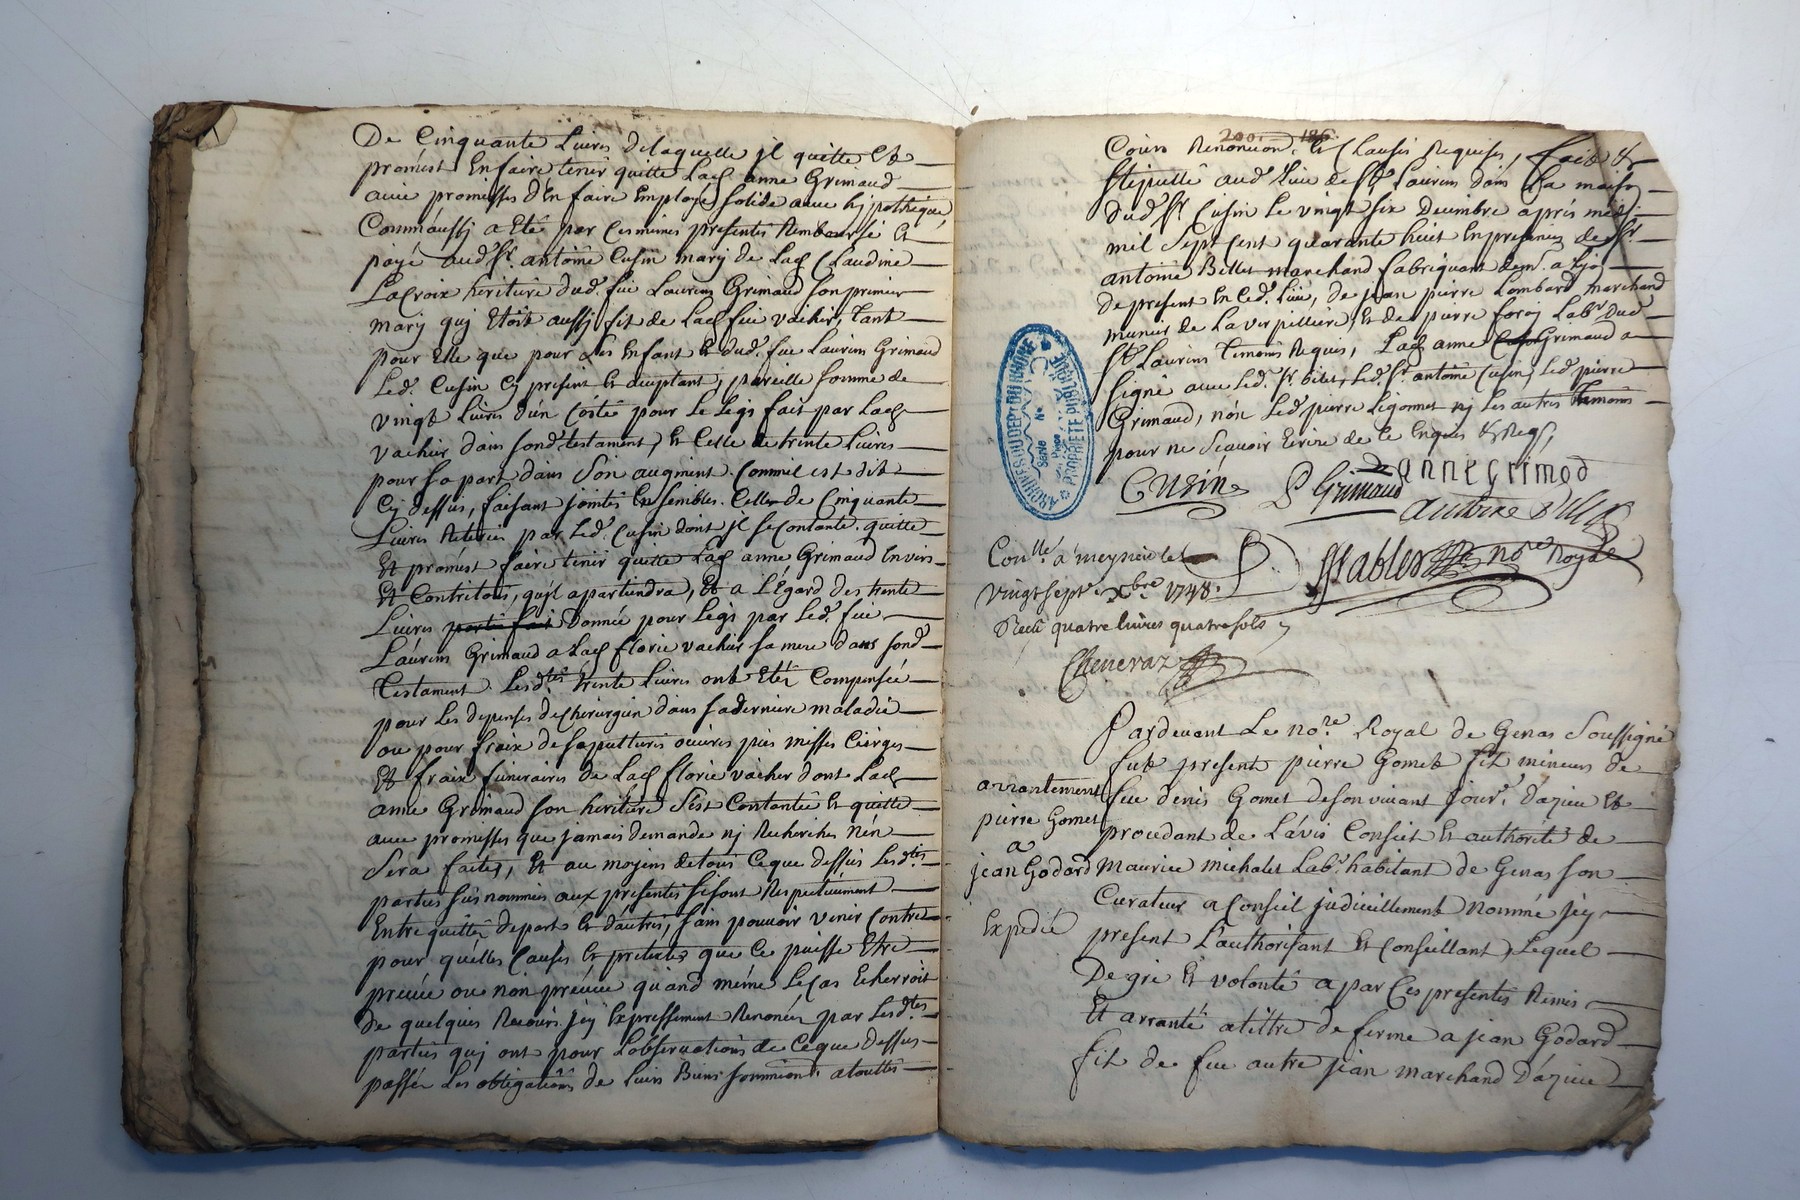 De Cinquante Livres delaquelle jl quitte Et
promest En faire tenir quitte Lad. anne Grimaud
avec promesses d'En faire Employe solide avec hypotheque
Comm'aussj a Eté par Ces mémes presentes Remboursé Et
payé aud. Sr. antoine Cusin marij de Lad. Claudine
La Croix heritiere dud. feu Laurens Grimaud son premier
marij quj Etoit aussj fit de Lad. feüe vacher, tant
pour Elle que pour Les Enfant Et dud. feu Laurens Grimaud
Led. Cusin Cy present Et aceptant, pareille somme de
vingt Livres d'un Cósté pour Le Legs fait par Lad.
vacher dans sond. testament, Et Celle de trente Livres
pour sa part dans Son augment Comm'il est dit
Cy dessus, faisant jointes Ensembles Celle de Cinquante
Livres Retirées par Led. Cusin dont jl se Contante quitte
Et promest faire tenir quitte Lad. anne Grimaud Envers
Et Contre tous, qu'jl apartiendra, Et a L'Egard des trente
Livres Donnée pour Legs par Led. feu
Laurens Grimaud a Lad. florie vacher sa mere dans sond.
Testament Lesd.tes trente Livres ont Etéz Compensée
pour Les depenses de Chirurgien dans sa derniere maladie
ou pour fraix de sepultures messes Cierges
Et fraix funeraires de Lad. florie vacher dont Lad.
anne Grimaud son heritiere s'Est Contantée Et quitte
avec promesses que jamais demande nj Recherches n'En
Sera faites, Et au moyens de tout Ce que dessus Lesd.tes
parties sus nommées aux presentes se sont Respectivement
Entre quittéz de part Et d'autres, sans pouvoir venir Contre
pour qu'elles Causes Et pretextes que Ce puisse Etre
preveüe ou non preveüe quand méme Le Cas Echerroit
de quelques Recours, jcy Expressement Renoncéz par Lesd.tes
parties quj ont pour L'observations de Ce que dessus
passéz Les obligations de Leurs Biens soumissions a touttes
200. 186.
Cours Renonciaon. Et Clauses Requises, fait &
stipullé aud. Lieu de St. Laurens dans La maison
dud. Sr. Cusin Le vingt six Decembre aprés midj
mil Sept Cent quarante huit En presences de Sr.
antoine Billet marchand fabriquant dem.t a Lyon
de present En Ced. Lieu, de jean pierre Lombard marchand
munier de La verpilliere, Et de pierre foroj Lab.r dud.
St. Laurens temoins Requis, Lad. anne Grimaud a
signé avec Led. Sr. billet, Led. Sr. antoine Cusin, Led. pierre
Grimaud, nón Led. pierre Ligonnet nj Les autres temoins
pour ne Scavoir Ecrire de Ce Enquis & Reqs,
Cusin P Grimaud anne Grimod
antoine Billet
Con.llé a meyzieu le
vingt sept Xbre 1748.
Recü quatre livres quatre sols
Cheneraz
Sablex no.re Royal
Pardevant Le no.re Royal de Genas Soussigné
fut present pierre Gomet fit mineur de
feu denis Gomet de son vivant jour.r D'azieu Et
procedant de L'ávis Conseil Et authorité de
Maurice michalet Lab.r habitant de Genas son
Curateur a Conseil judiciellement nommé jcy
present L'authorisant Et Conseillant, Lequel
De gré Et volonté a par Ces presentes Remis
Et arranté a tittre de ferme a jean Godard
fit de feu autre jean marchand D'azieu
arrantement
pierre Gomet
a
jean Godard
Expedié
ARCHIVES DU DEPT DU RHONE
PROPRIÉTÉ PUBLIQUE
Série
No
Pièce